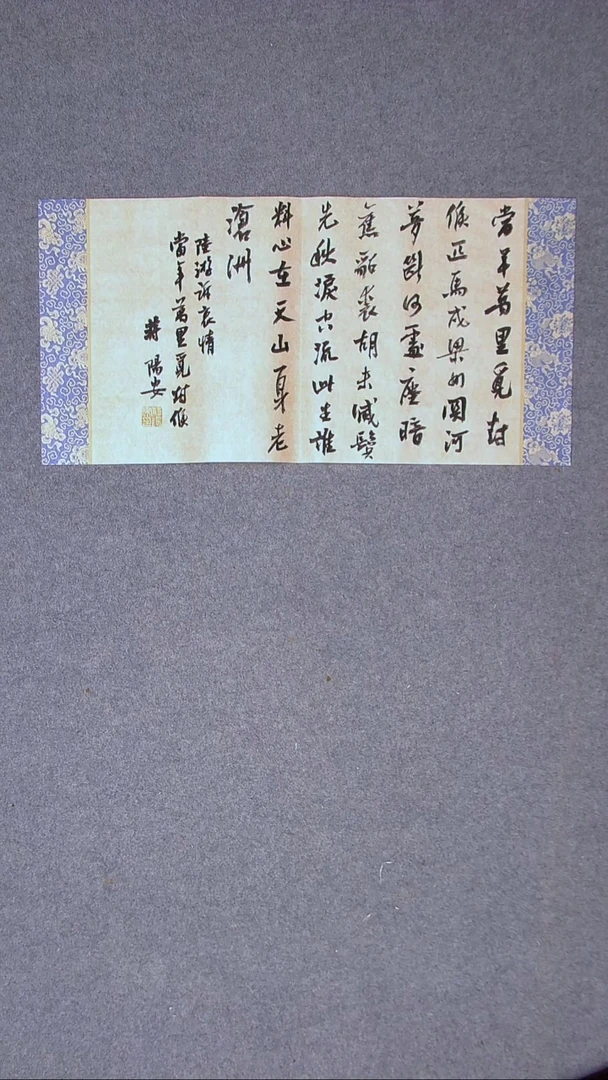 當年萬里覓封
侯匹馬戍梁州關河
夢斷何處塵暗
舊貂裘胡未滅鬢
先秋淚空流此生誰
料心在天山身老
滄洲
陸游訴衷情
當年萬里覓封侯
蔣陽安